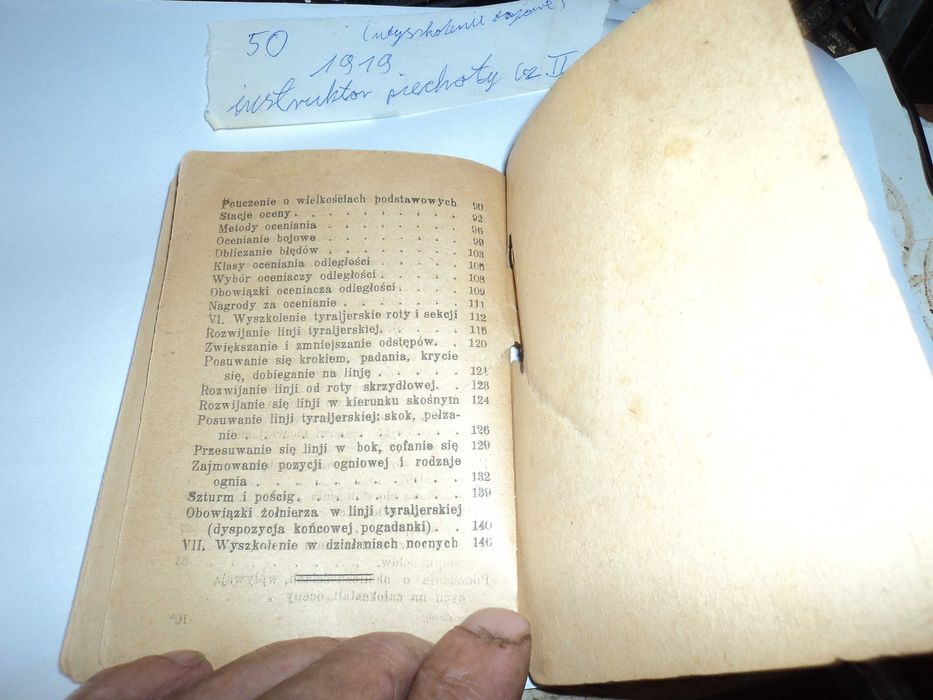 50 (wyszkolenie bojowe)
1919
instruktor piechoty cz II
Pouczenie o wielkościach podstawowych 90
Stacje oceny . . . . . . . . 92
Metody oceniania . . . . . . . 96
Ocenianie bojowe . . . . . . . 99
Obliczanie błędów . . . . . . . 103
Klasy oceniania odległości . . . . . 106
Wybór oceniaczy odległości . . . . . 108
Obowiązki oceniacza odległości . . . . 109
Nagrody za ocenianie . . . . . . 111
VI. Wyszkolenie tyraljerskie roty i sekcji 112
Rozwijanie linji tyraljerskiej. . . . . 116
Zwiększanie i zmniejszanie odstępów. . . 120
Posuwanie się krokiem, padania, krycie
się, dobieganie na linję . . . . . 121
Rozwijanie linji od roty skrzydłowej. . 123
Rozwijanie się linji w kierunku skośnym 124
Posuwanie linji tyraljerskiej: skok, pełza-
nie . . . . . . . . . . 126
Przesuwanie się linji w bok, cofanie się 129
Zajmowanie pozycji ogniowej i rodzaje
ognia . . . . . . . . . . 132
Szturm i pościg. . . . . . . . 139
Obowiązki żołnierza w linji tyraljerskiej
(dyspozycja końcowej pogadanki) . . 140
VII. Wyszkolenie w działaniach nocnych 146